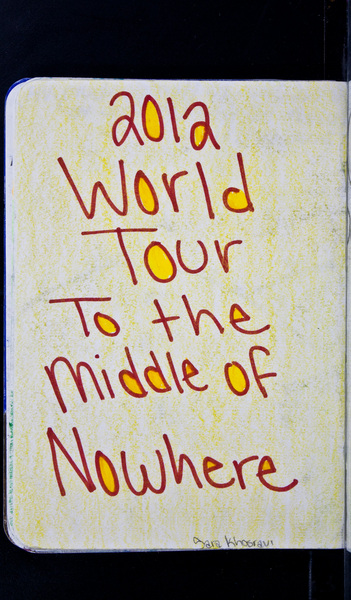 2012
World
Tour
To the
Middle of
Nowhere
Sara Khosravi